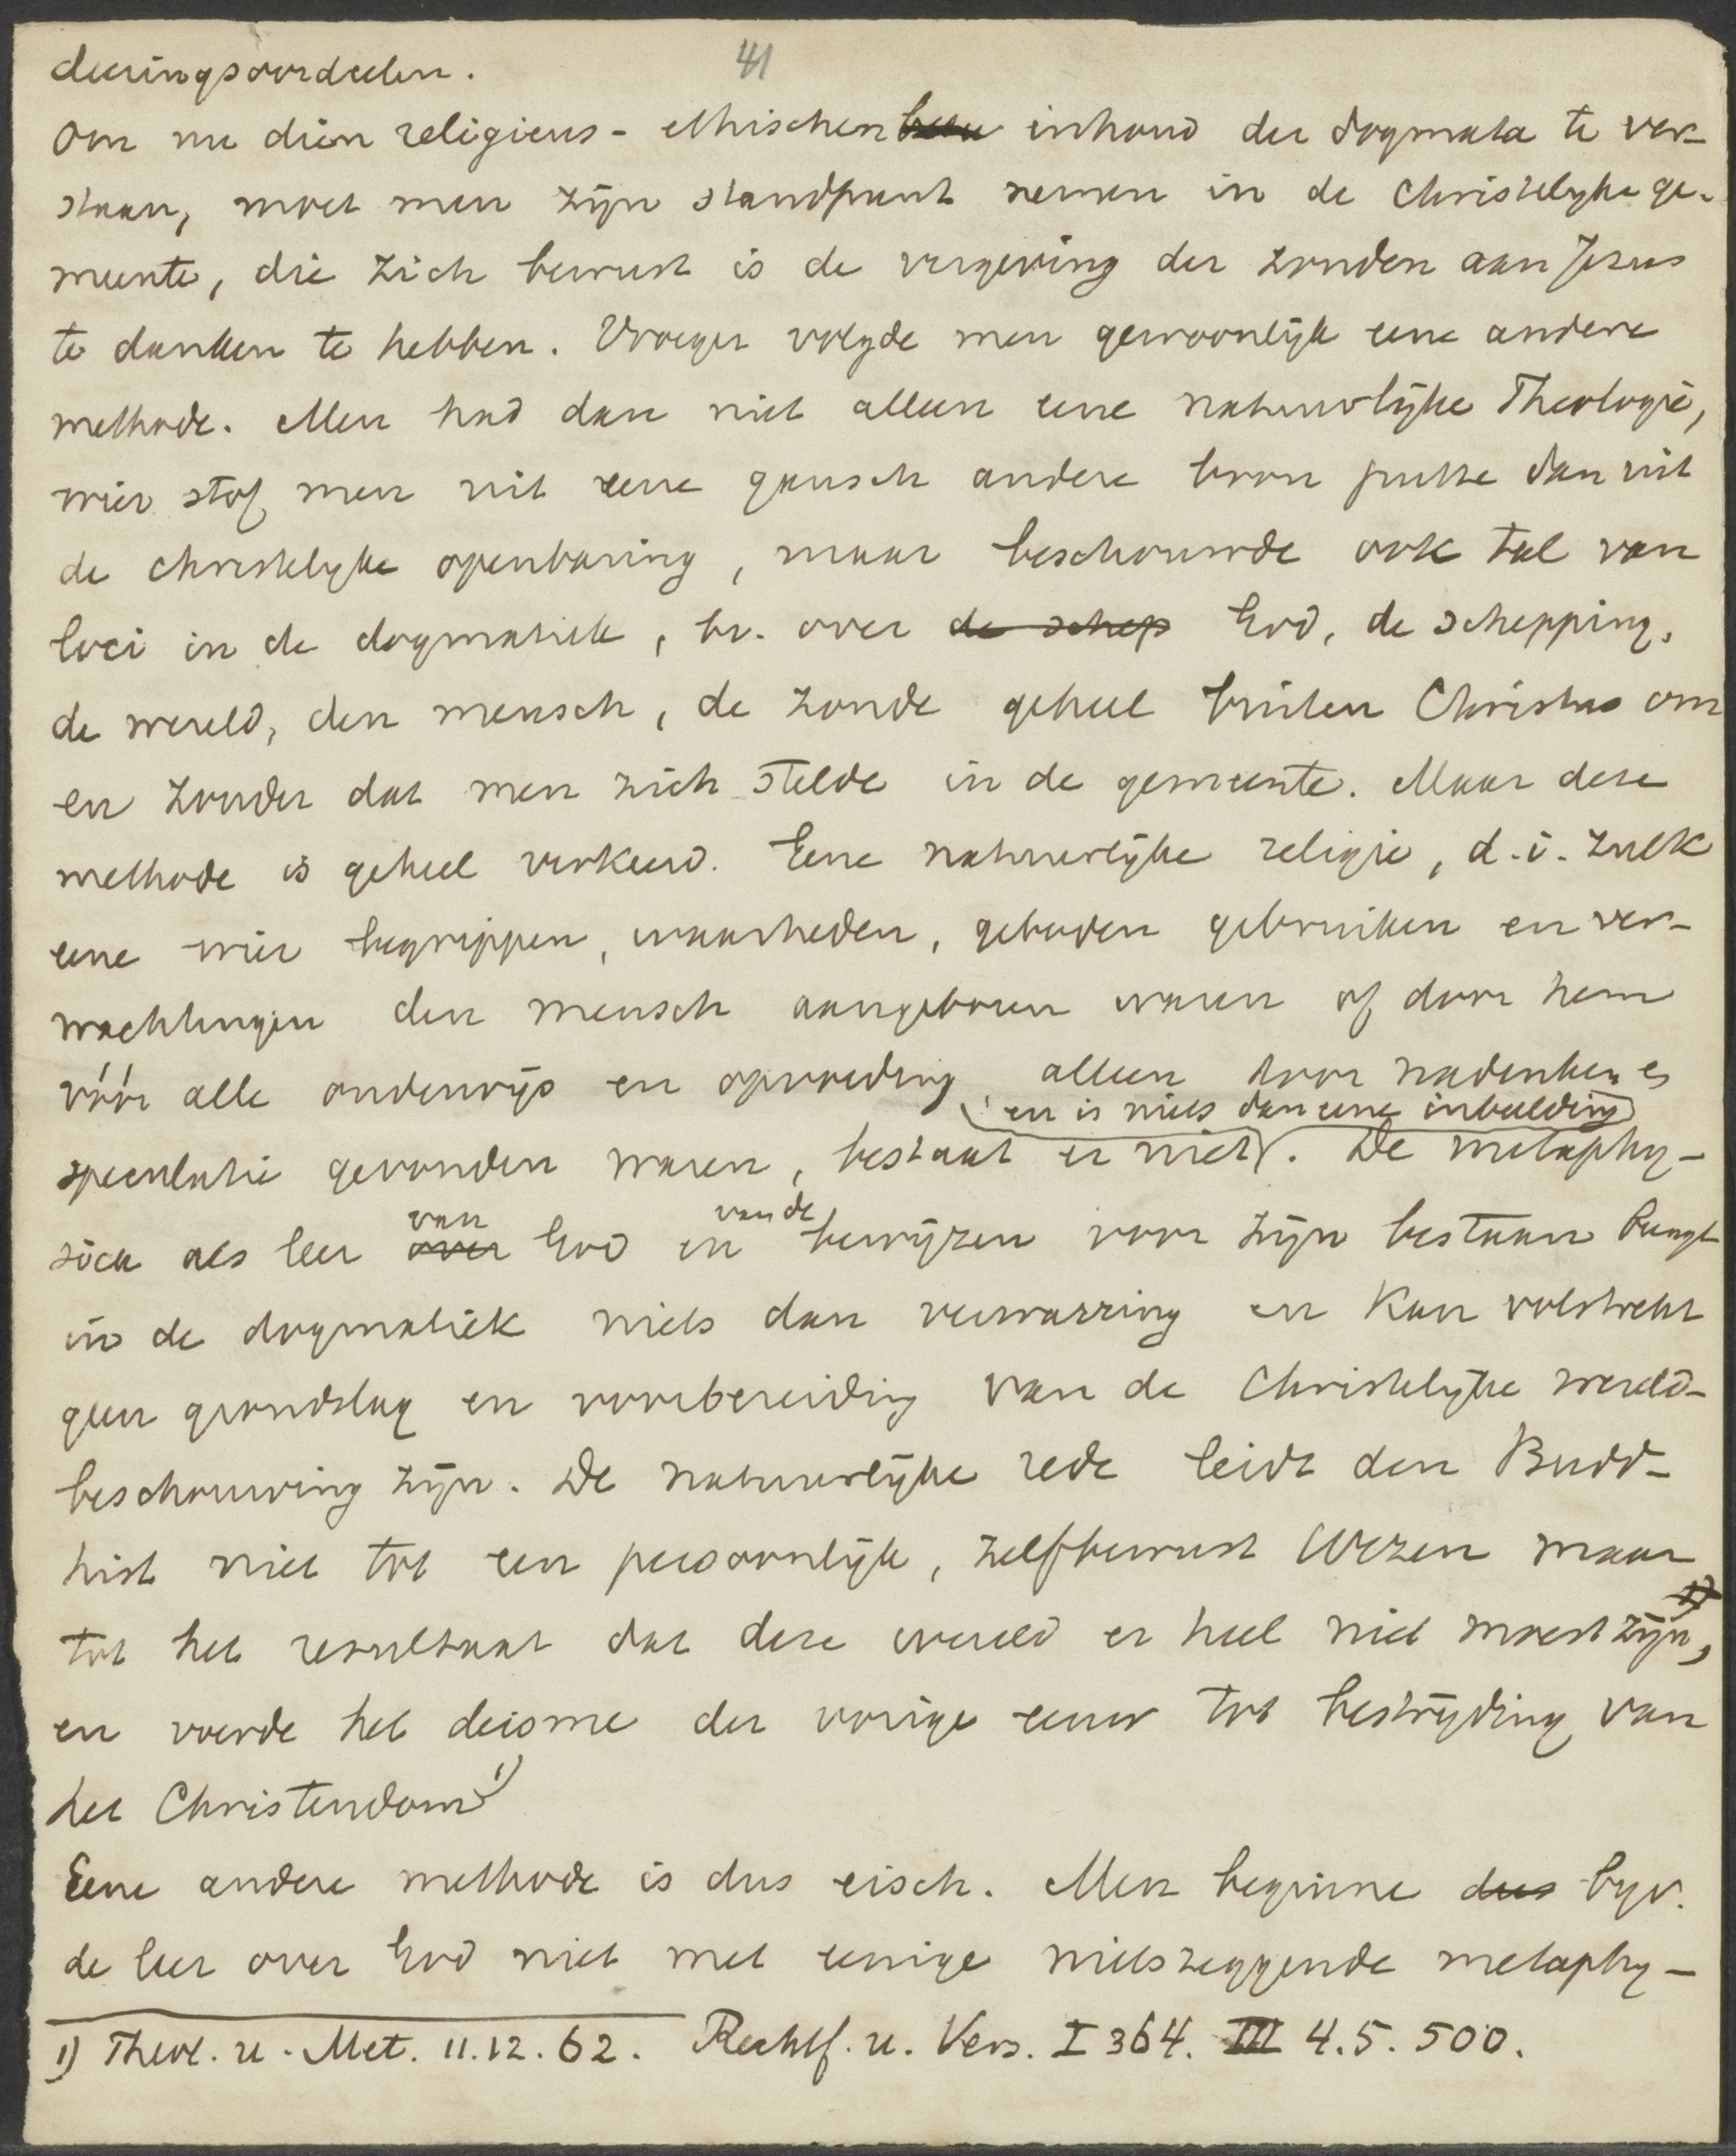 41
deeringsoordeelen.
Om nu dien religieus-ethischen inhoud der dogmata te ver-
staan, moet men zijn standpunt nemen in de Christelyke ge-
meente, die zich bewust is de vergeving der zonden aan Jezus
te danken te hebben. Vroeger volgde men gewoonlijk eene andere
methode. Men had dan niet alleen eene natuurlijke Theologie,
wier stof men uit eene gansch andere bron putte dan uit
de christelyke openbaring, maar beschouwde ook tal van
loci in de dogmatiek, bv. over de schep God, de schepping,
de wereld, den mensch, de zonde geheel buiten Christus om
en zonder dat men zich stelde in de gemeente. Maar deze
methode is geheel verkeerd. Eene natuurlijke religie, d.i. zulk
eene wier begrippen, waarheden, geboden gebruiken en ver-
wachtingen den mensch aangeboren waren of door hem
vóór alle onderwijs en opvoeding alleen door nadenken en
en is niets dan eene inbeelding
speculatie gevonden waren, bestaat er niet. De metaphy-
van van de
sica als leer over God en bewijzen voor zijn bestaan brengt
in de dogmatiek niets dan verwarring en kan volstrekt
geen grondslag en voorbereiding van de Christelijke wereld-
beschouwing zijn. De natuurlijke rede leidt den Budd-
hist niet tot een persoonlijk, zelfbewust Wezen maar
tot het resultaat dat deze wereld er heel niet moest zijn, 1)
en voerde het deisme der vorige eeuw tot bestrijding van
het Christendom 1)
Eene andere methode is dus eisch. Men beginne dus byv.
de leer over God niet met eenige nietszeggende metaphy-
1) Theol. u. Met. 11.12.62. Rechtf. u. Vers. I 364. III 4.5.500.